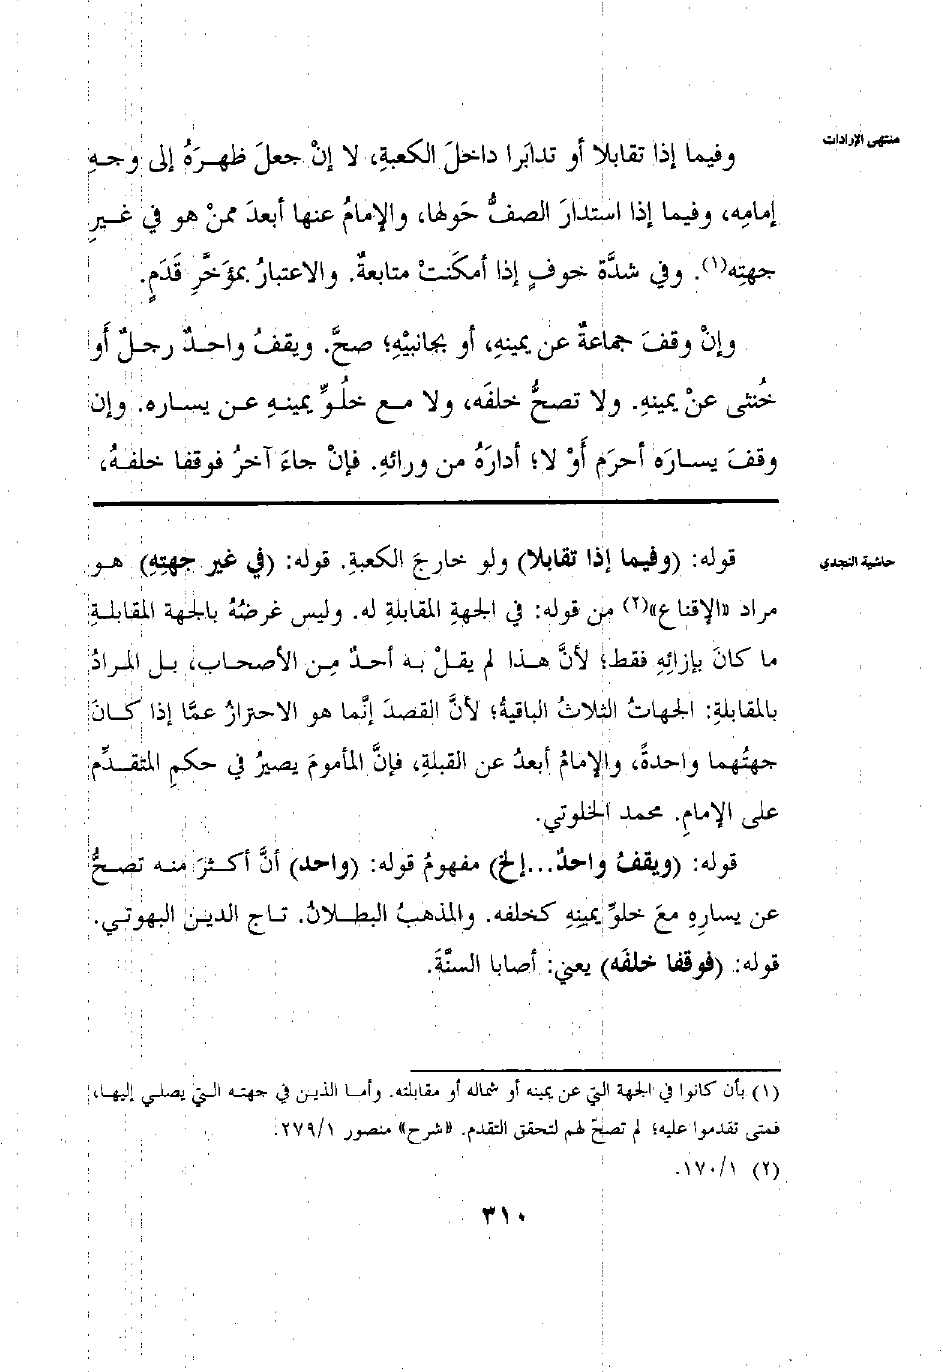 منتهى الإرادات
وفيما إذا تقابلا أو تدابَرا داخلَ الكعبةِ، لا إنْ جعلَ ظهـرَهُ إلى وجـهِ
إمامِه، وفيما إذا استدارَ الصفُّ حَولها، والإمامُ عنها أبعدَ ممنْ هو في غـيرِ
جهتِه(١). وفي شدَّة خوفٍ إذا أمكَنتْ متابعةٌ. والاعتبارُ بمؤَخَّرِ قَدَمٍ.
وإنْ وقفَ جماعةٌ عن يمينهِ، أو بجانبيْهِ؛ صحَّ. ويقفُ واحـدٌ رجـلٌ أو
خُنثى عنْ يمينهِ. ولا تصحُّ خلفَه، ولا مـع خلُـوِّ يمينـهِ عـن يساره. وإن
وقفَ يسارَه أحرَم أَوْ لا؛ أدارَهُ من ورائهِ. فإنْ جاءَ آخرُ فوقفا خلفـهُ،
حاشية النجدي
قوله: (وفيما إذا تقابلا) ولو خارجَ الكعبةِ. قوله: (في غير جهتِهِ) هـو
مراد «الإقناع»(٢) من قوله: في الجهةِ المقابلةِ له. وليس غرضُهُ بالجهة المقابلـةِ
ما كانَ بإزائِهِ فقط؛ لأنَّ هـذا لم يقـلْ بـه أحـدٌ مِـن الأصحاب، بـل المـرادُ
بالمقابلةِ: الجهاتُ الثلاثُ الباقيةُ؛ لأنَّ القصدَ إنَّما هو الاحترازُ عمَّا إذا كـانَ
جهتُهما واحدةً، والإمامُ أبعدُ عن القبلةِ، فإنَّ المأمومَ يصيرُ في حكمِ المتقـدِّم
على الإمامِ. محمد الخلوتي.
قوله: (ويقفُ واحدٌ...إلخ) مفهومُ قوله: (واحد) أنَّ أكـثرَ منـه تصـحُّ
عن يسارِهِ معَ خلوِّ يمينِهِ كخلفه. والمذهبُ البطـلانُ. تـاج الديـن البهوتـي.
قوله: (فوقفا خلفَه) يعني: أصابا السنَّةَ.
(١) بأن كانوا في الجهة التي عن يمينه أو شماله أو مقابلته. وأمـا الذيـن في جهتـه الـتي يصلـي إليهـا،
فمتى تقدموا عليه؛ لم تصحّ لهم لتحقق التقدم. «شرح» منصور ٢٧٩/١.
(٢) ١٧٠/١.
٣١٠